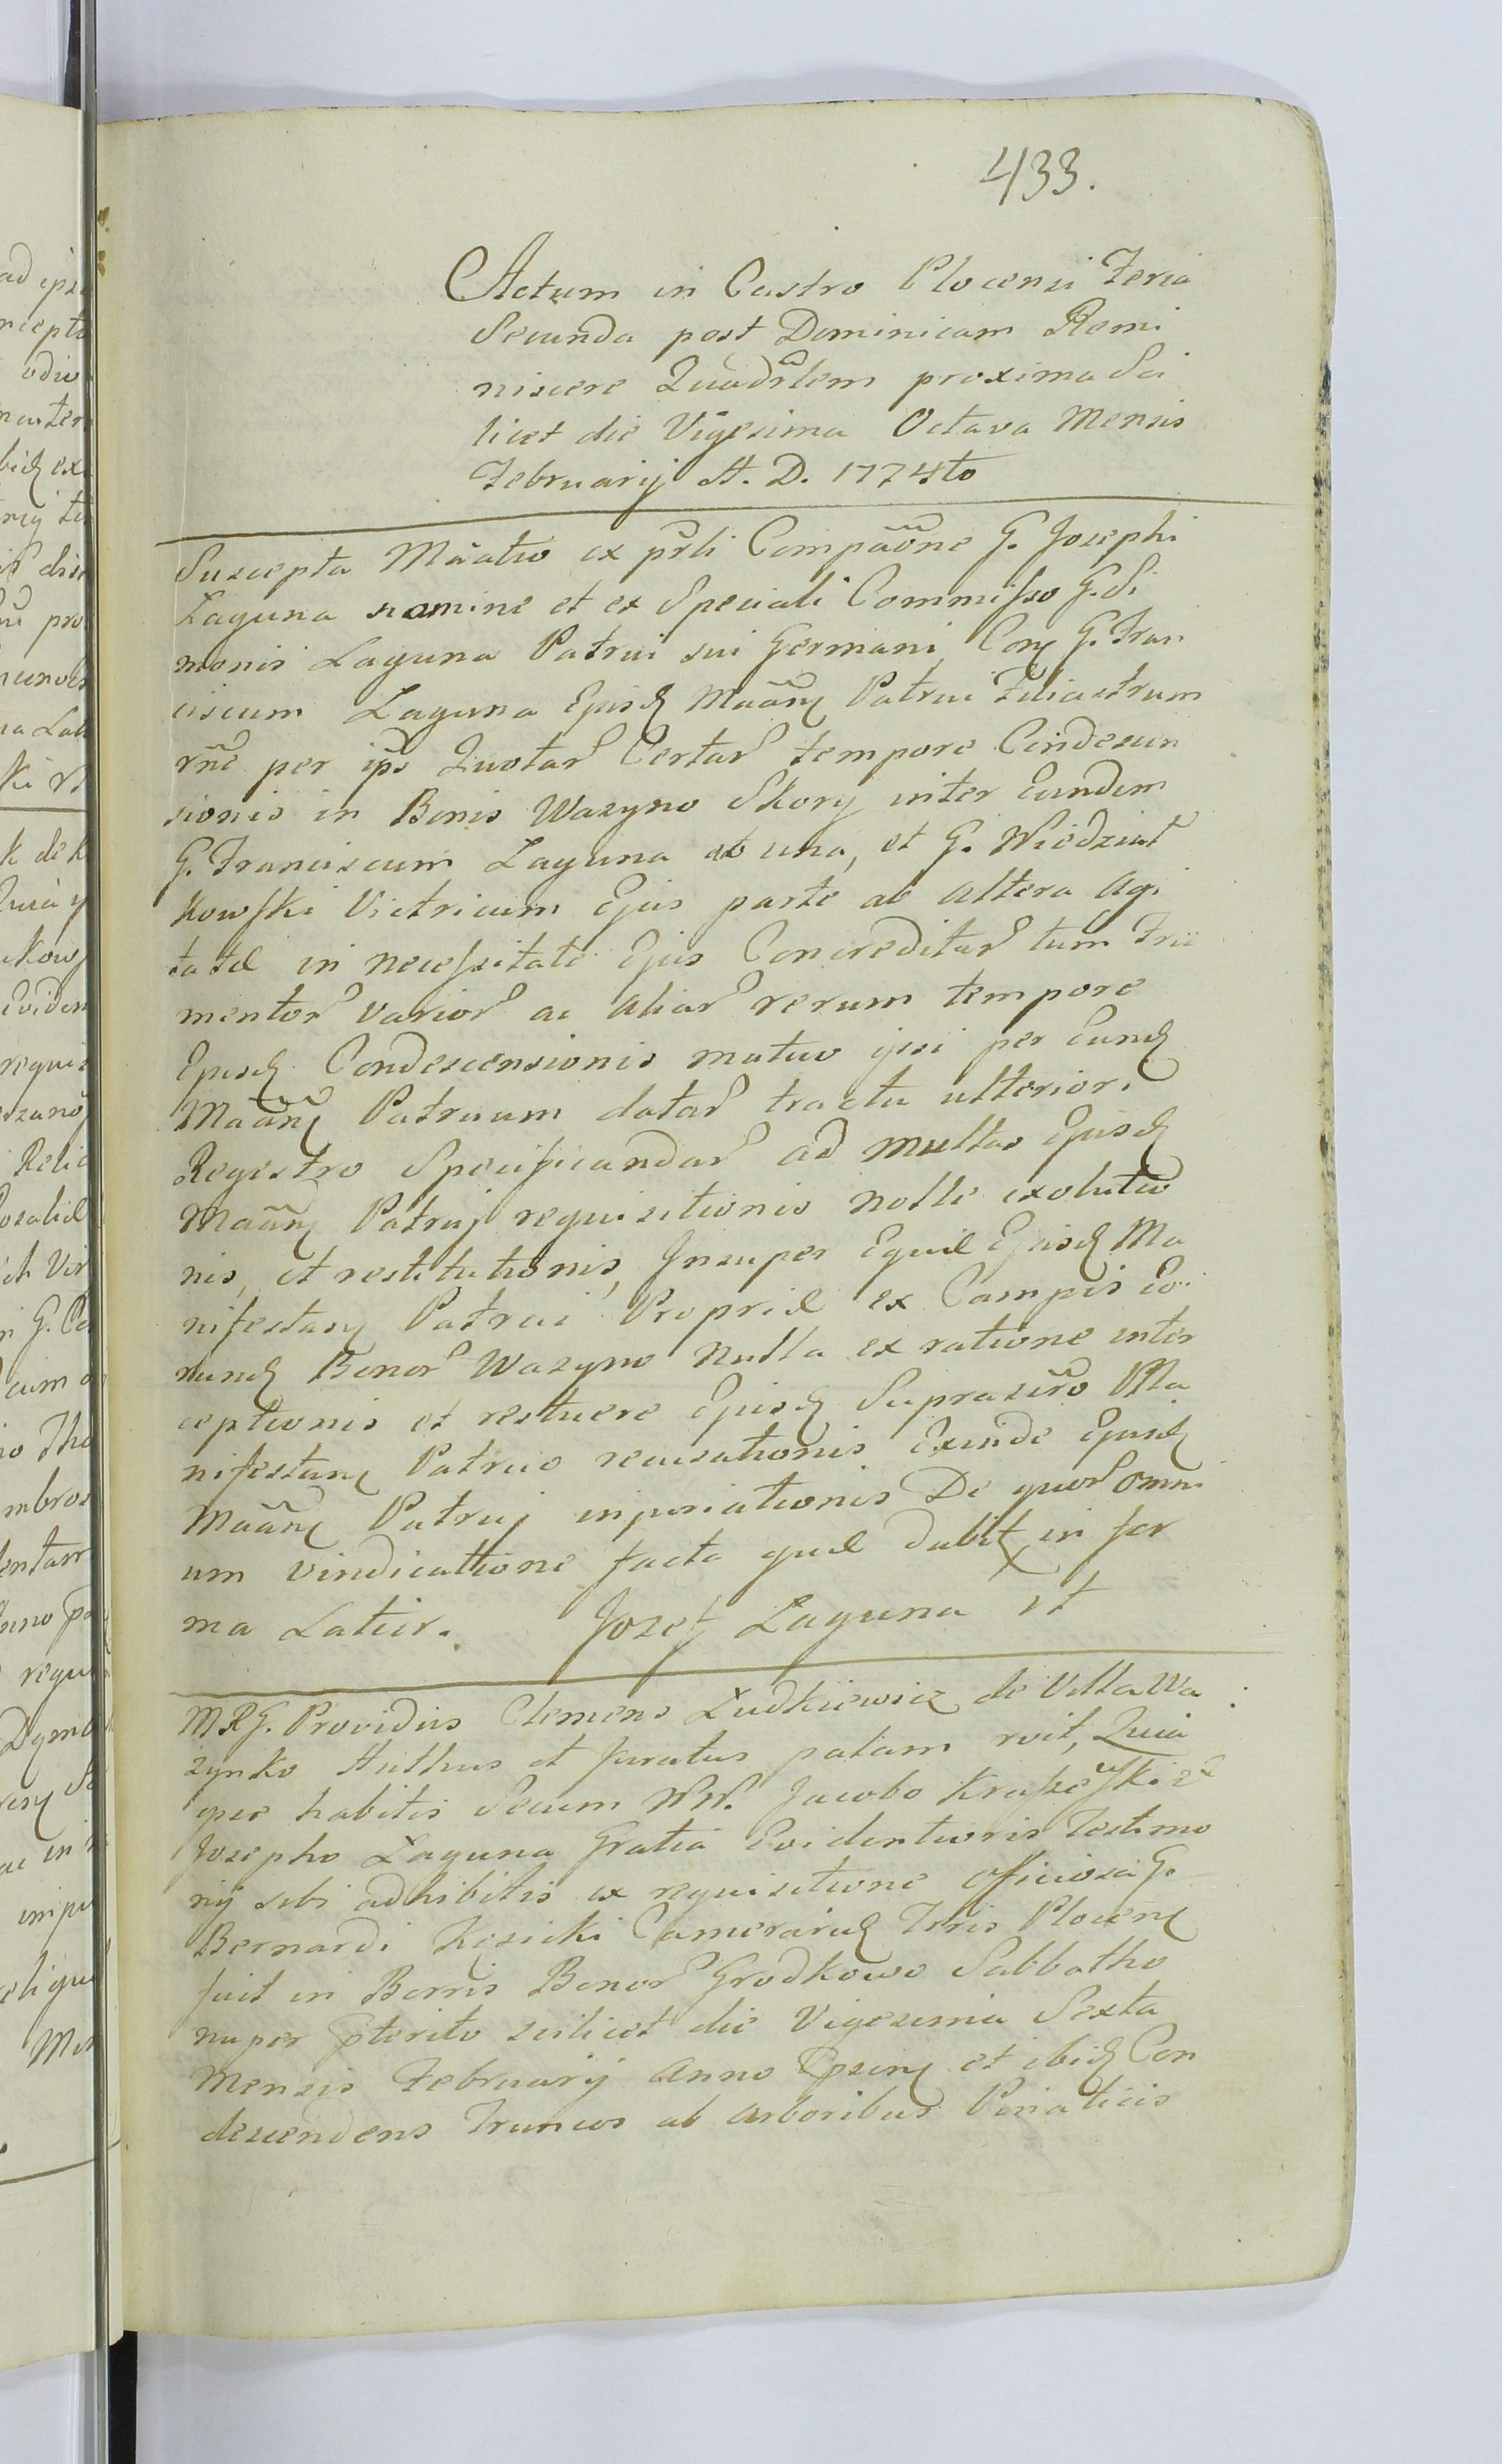 433.
Actum in Castro Plocensi Feria
Secunda post Dominicam Remi
niscere Quadrlem proxima Sci
licet die Vigesima Octava Mensis
Februarij A. D. 1774to
Suscepta Maãtio ex prli Compaõne G. Josephi
Laguna nomine et ex Speciali Commisso G. Si
monis Laguna Patrui sui Germani Con G. Fran
ciscum Laguna Ejusd Maãn Patrui Filiastrum
rñe per ips Quotar Certar tempore Condescen
sionis in Bonis Wazyno Skory inter Eundem
G. Franciscum Laguna ab una, et G. Niedział
kowski Vietricum Ejus parte ab altera Agi
tatæ in necessitate Ejus Concreditar tum Fru
mentor varior ac aliar rerum tempore
Ejusd Condescensionis mutuo ipsi per Eund
Maãn Patruum datar tractu ulteriori
Regestro Specificandar ad multas Ejusd
Maãn Patruj requisitionis nolle exolutio
nis, et restitutionis, Insuper Equæ Ejusd Ma
nifestan Patrui Propriæ ex Campis Eo
rund Bonor Wazyno nulla ex ratione inter
ceptionis et restuere Ejusd Suprascro Ma
nifestan Patruo recusationis Exinde Ejusd
Maãn Patruj injuriationis De quor omni
um vindicatione facta quæ dabit in for
ma Latior. Jozef Laguna
MRG. Providus Clemens Ludkiewicz de Villa Wa
zynko Authus et Juratus palam roit, Quia
ipse habitis Secum NN. Jacobo Kraszewski et
Josepho Laguna Gratia Evidentioris Testimo
nij sibi adhibitis ex requisitione officiosa G.
Bernardi Kęsicki Camerarid Trris Plocen
fuit in Borris Bonor Grodkowo Sabbatho
nuper pterito scilicet die Vigesima Sexta
Mensis Februarij Anno Epsin et ibid Con
descendens Truncos ab arboribus Pinaticis